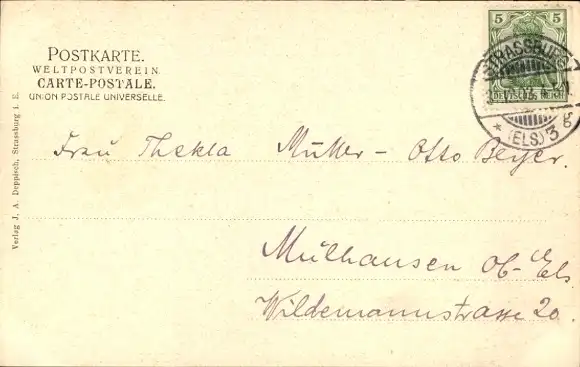 POSTKARTE.
WELTPOSTVEREIN.
CARTE-POSTALE.
UNION POSTALE UNIVERSELLE.
Verlag J. A. Deppisch, Strassburg i. E.
5 5
DEUTSCHES REICH
STRASSBURG
(ELS.) 3 g
Frau Thekla Müller - Otto Beyer.
Mülhausen Ob-Els
Wildemannstrasse 20.